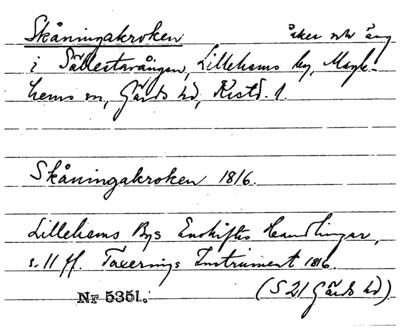 Skåningakroken åker och äng
i Sällestavången, Lillehems by, Magle-
hems sn, Gärds hd, Kristd. l.
Skåningakroken 1816.
Lillehems Bys Enskiftes Handlingar,
s. 11 ff. Taxerings Instrument 1816.
(S 21 Gärds hd)
Nr 5351.